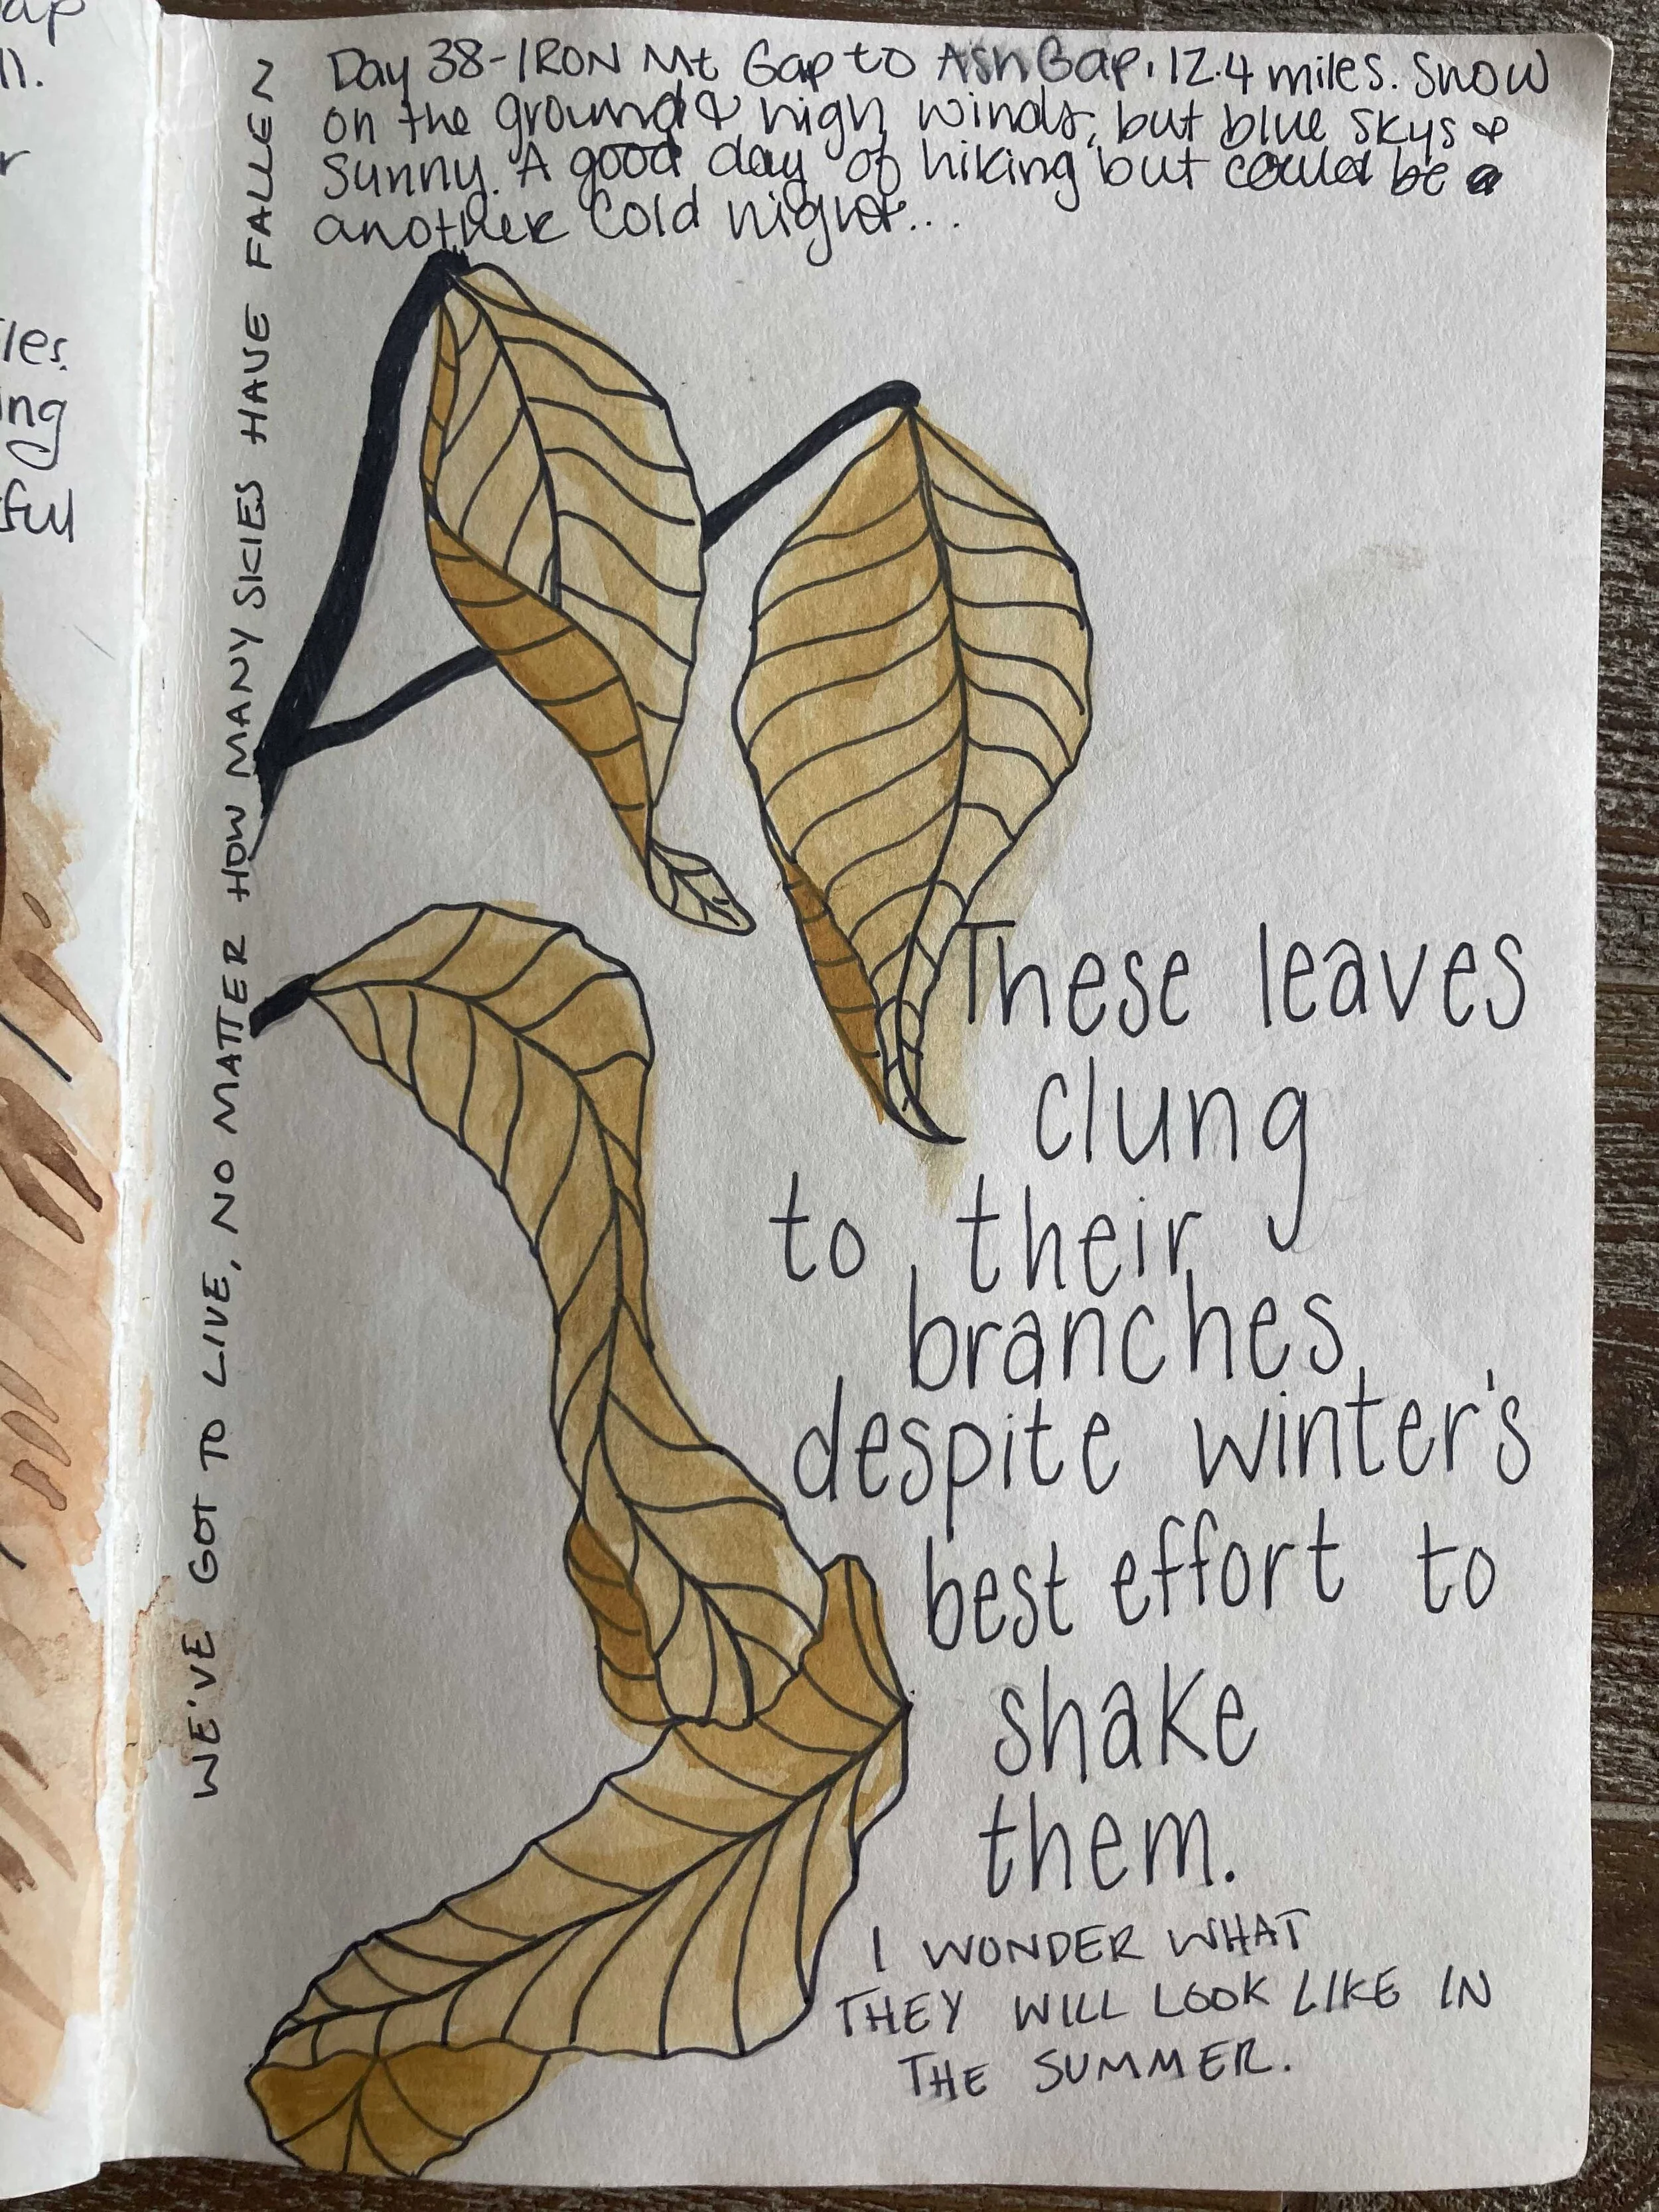 ap
n.
r
les.
ing
ful
Day 38-IRON Mt Gap to Ash Gap. 12.4 miles. Snow
on the ground & high winds, but blue skys &
sunny. A good day of hiking but could be
another cold night...
WE'VE GOT TO LIVE, NO MATTER HOW MANY SKIES HAVE FALLEN
These leaves
clung
to their
branches
despite winter's
best effort to
shake
them.
I WONDER WHAT
THEY WILL LOOK LIKE IN
THE SUMMER.